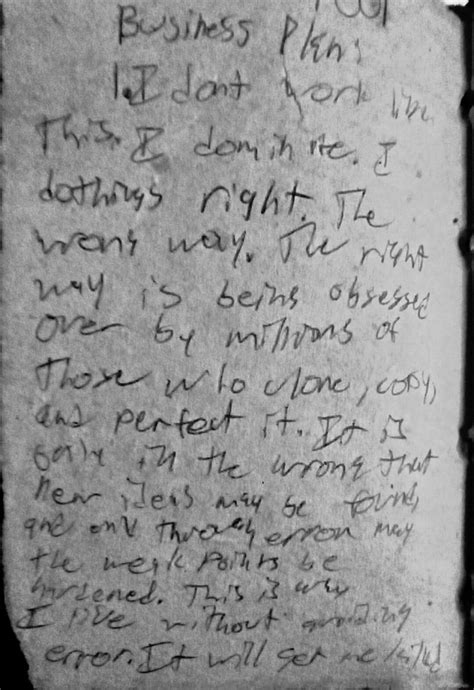 Business Plan:
1. I dont work like
This. I dominite. I
dothings right. The
wrong way. The right
way is being obsessed
over by millions of
those who clone, copy,
and perfect it. It is
only in the wrong that
new ideas may be found,
and only through error may
the weak points be
hardened. This is why
I live without avoiding
error. It will get me killed